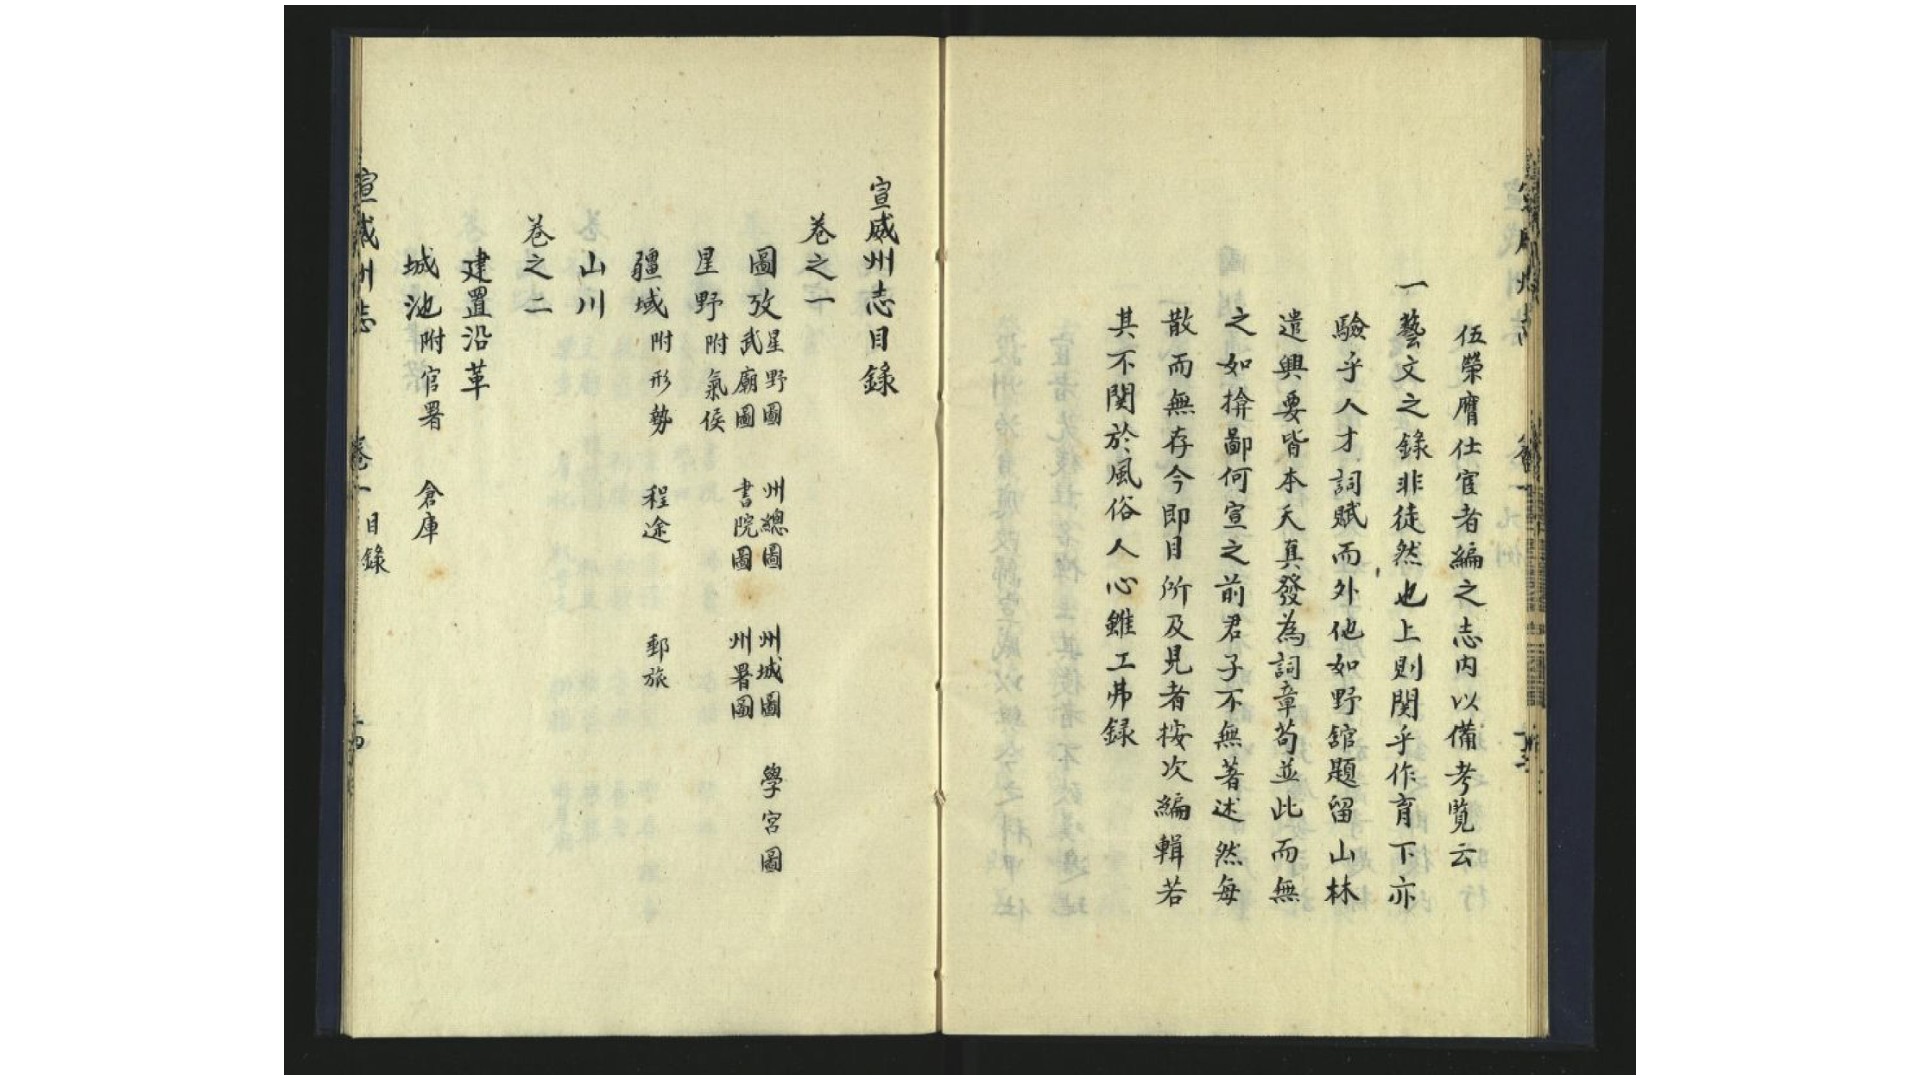 伍榮膺仕宦者編之志內以備考覽云
一藝文之錄非徒然也上則関乎作育下亦
驗乎人才詞賦而外他如野舘題留山林
遣興要皆本天真發為詞章苟並此而無
之如揜鄙何宣之前君子不無著述然每
散而無存今即目所及見者按次編輯若
其不関於風俗人心雖工弗録
宣威州志目錄
卷之一
圖攷 星野圖 州總圖 州城圖 學宮圖
武廟圖 書院圖 州署圖
星野 附氣候
疆域 附形勢 程途 郵旅
山川
卷之二
建置沿革
城池 附官署 倉庫
宣威州志 卷一 目錄